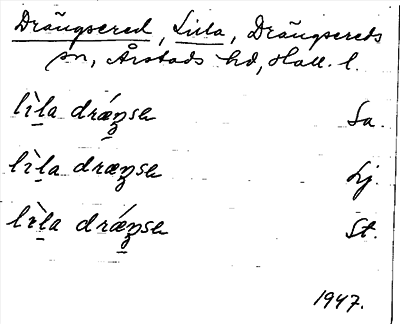 Drängsered, Lilla, Drängsereds
sn, Årstads hd, Hall. l.
lìla dráŋse Sa.
lìla dræŋse Lj.
lìla dráŋse St.
1947.